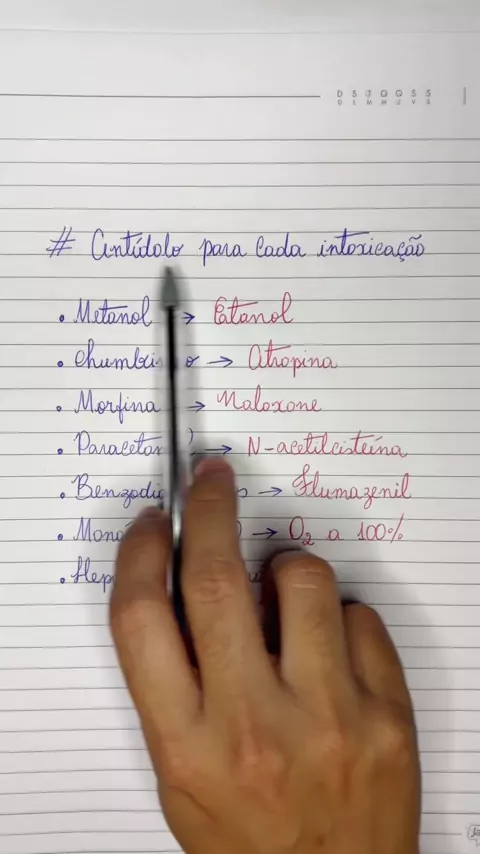 D S T Q Q S S
D L M M J V S
# Antídoto para cada intoxicação
• Metanol → Etanol
• Chumbinho → Atropina
• Morfina → Naloxone
• Paracetamol → N-acetilcisteína
• → Flumazenil
• → O₂ a 100%
•